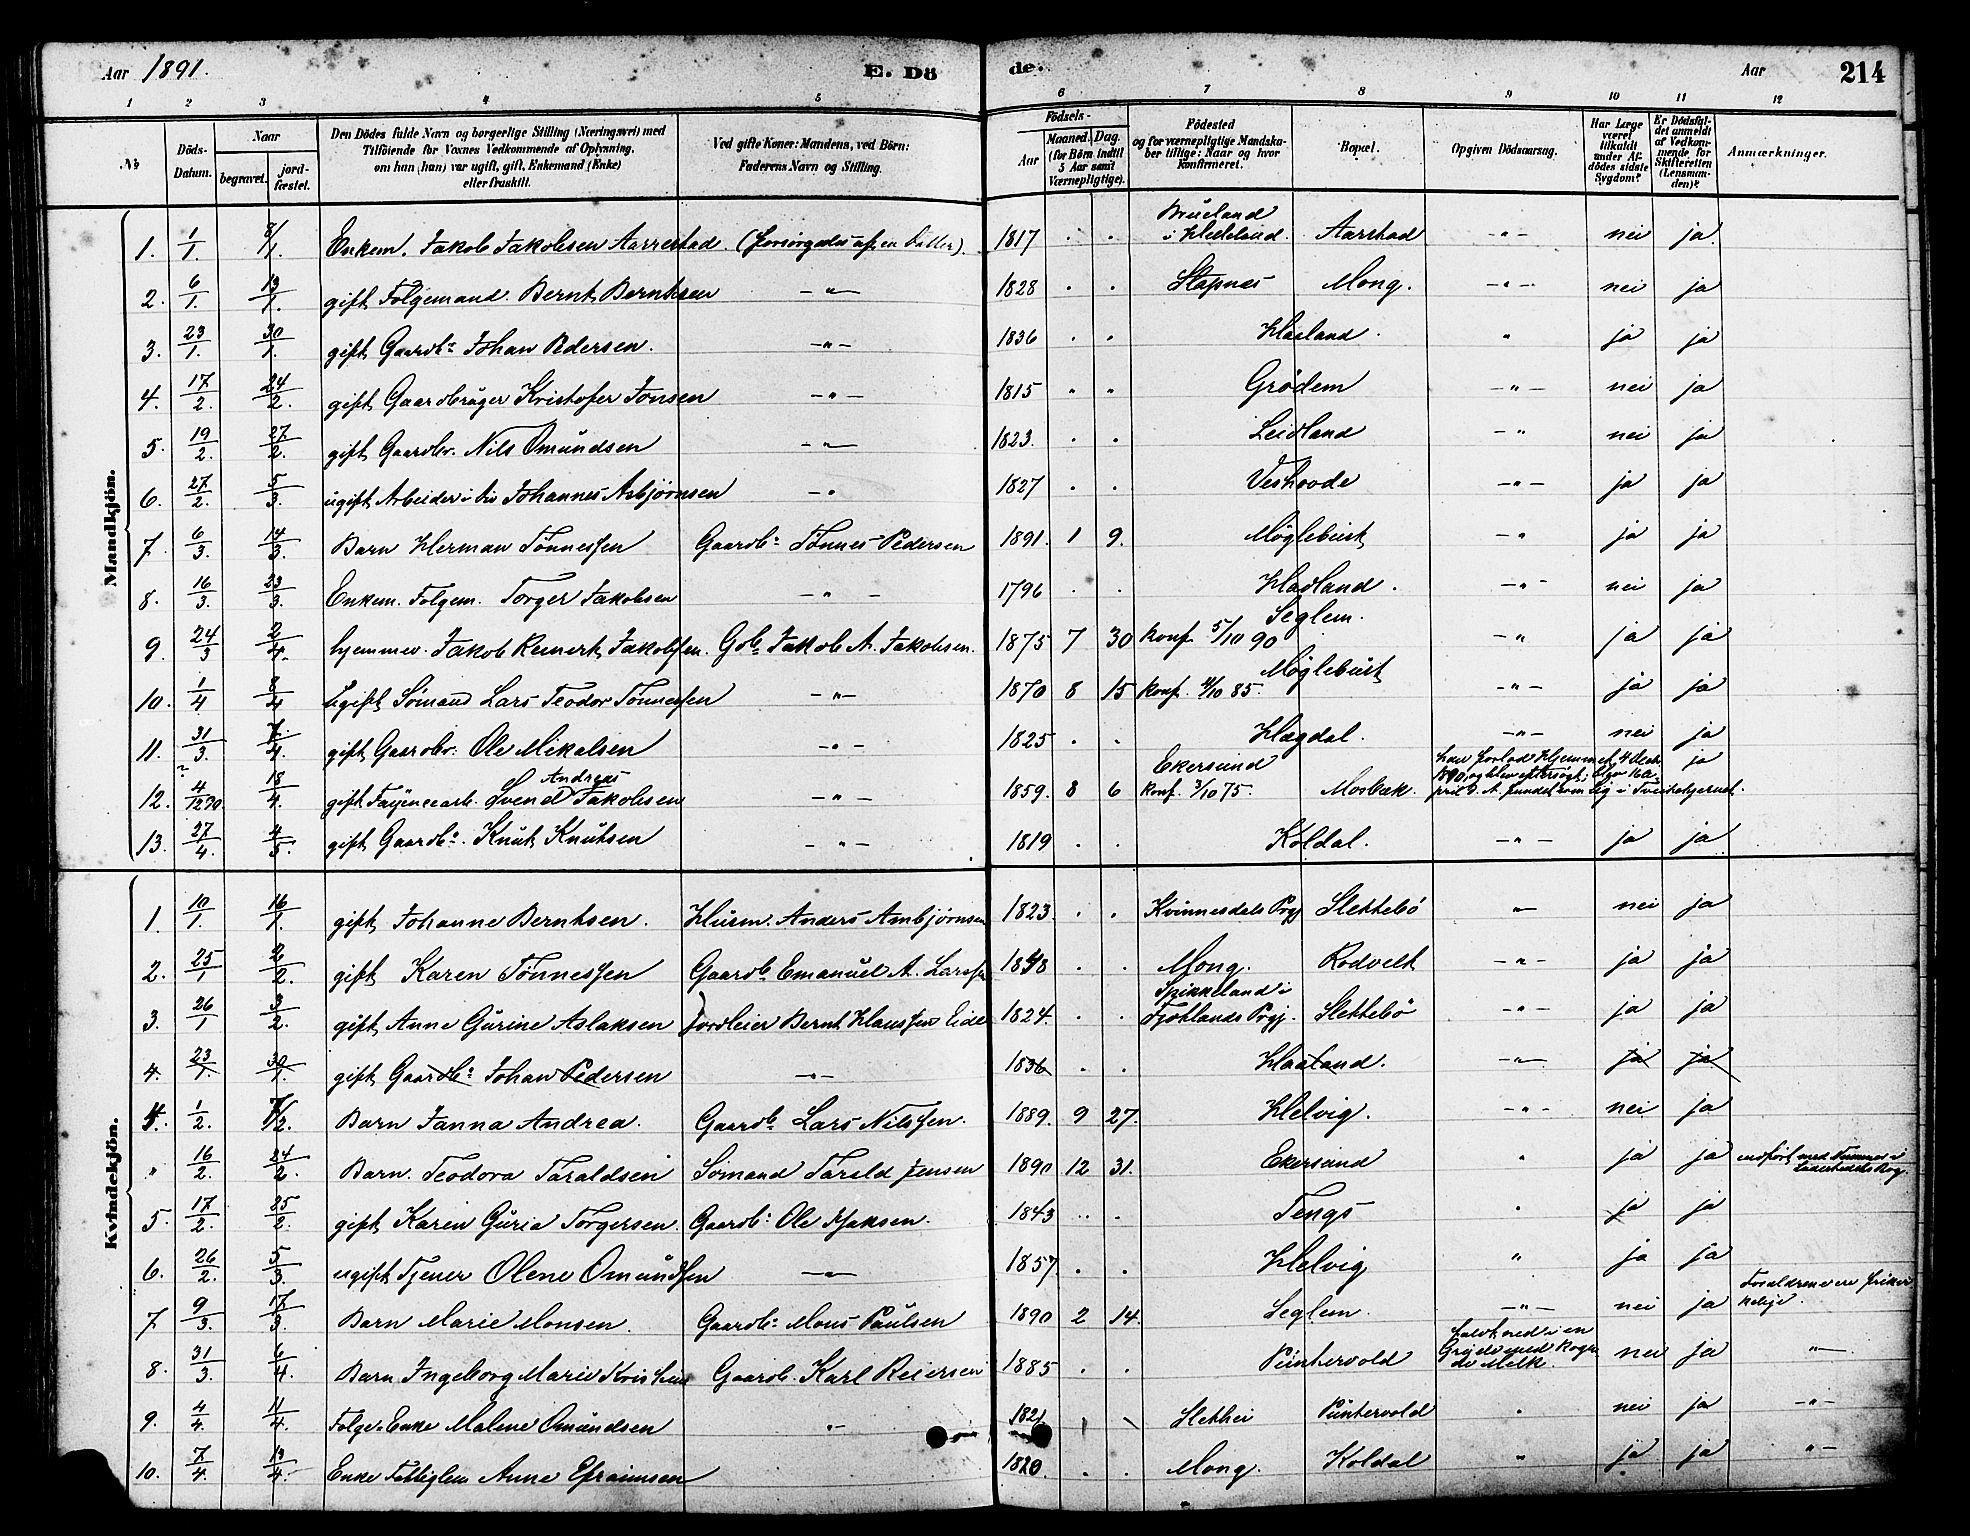 Aar 1891. E. Dö de. Aar 214
1 2 3 4 5 6 7 8 9 10 11 12
No
Döds-Datum.
Naar
begravet.
jord-fæstet.
Den Dödes fulde Navn og borgerlige Stilling (Næringsvei) med
Tilföiende for Voxnes Vedkommende af Oplysning,
om han (hun) var ugift, gift, Enkemand (Enke)
eller fraskilt.
Ved gifte Koner: Mandens, ved Börn:
Faderens Navn og Stilling.
Födsels-
Aar
Maaned. Dag.
(for Børn indtil
5 Aar samt
Værnepligtige).
Födested
og for værnepligtige Mandska-
ber tillige: Naar og hvor
konfirmeret.
Bopæl.
Opgiven Dödsaarsag.
Har Læge
været
tilkaldt
under Af-
dödes sidste
Sygdom?
Er Dödsfal-
det anmeldt
af Vedkom-
mende for
Skifteretten
(Lensman-
den)?
Anmærkninger.
Mandkjön.
1. 1/1. 8/1. Enkem. Jakob Jakobsen Aarrestad (forsørgedes af en Datter). 1817 . . Brueland i Helleland. Aarstad -"- nei ja.
2. 6/1. 13/1. gift Folgemand. Bernt Berntsen -"- 1828 . . Stapnes Mong. -"- nei ja
3. 23/1. 30/1. gift Gaardbr. Johan Pedersen. -"- 1836 . . Haaland. " ja ja
4. 17/2. 24/2. gift Gaardbruger Kristofer Jonsen -"- 1815 " " Grødem -"- nei ja
5. 19/2. 27/2. gift Gaardbr. Nils Omundsen -"- 1823. . . Leidland -"- nei ja
6. 27/2. 5/3. ugift Arbeider Johannes Asbjørnsen -" 1827 . . Veshovde -"- ja ja
7. 6/3. 14/3. Barn Herman Tønnessen Gaardbr. Tønnes Pedersen 1891. 1 9. Møglebust -" ja ja
8. 16/3. 23/3. Enkem. Folgem. Torger Jakobsen -"- 1796 . . Hadland. -"- nei ja
9. 24/3 2/4. hjemmev. Jakob Reinert Jakobsen. Gbr. Jakob A. Jakobsen. 1875 7 30 Seglem. Konf. 5/10 90 -" ja ja
10. 1/4 8/4 Ugift Sømand Lars Teodor Tønnessen -"- 1870 8 15 Møglebust Konf. 4/10 85. -"- ja ja
11. 31/3. 7/4. gift Gaardbr. Ole Mikalsen -"- 1825 . . Hægdal. -"- nei ja
12. ? 4/12 90. 18/4. gift Fayencearb. Svend Andreas Jakobsen -"- 1859. 8 6 Ekersund Konf. 3/10 75. Mosbæk. han forlod Hjemmet 4 Decbr 1890 og blev eftersøgt; blev 14 April d. A. fundet som Lig i Tveitetjernet. ja
13. 27/4. 4/5. gift Gaardbr. Knut Knutsen -"- 1819 . . Koldal. -"- ja ja
Kvindekjön.
1. 10/1. 16/1. gift Johanne Berntsen. Husm. Anders Ambjørnsen 1823. . . Kvinnesdals Prgj Slettebø " nei ja
2. 25/1 2/2. gift Karen Tønnessen Gaardbr Emanuel A. Larsen 1848 . . Mong. Rodvelt -"- ja ja
3. 26/1 3/2. gift Anne Gurine Aslaksen Jordleier Bernt Klaussen Eide 1824. . . Spikkeland i Fjotlands Prgj. Slettebø -"- ja ja
4. 23/1. 30/1. gift Gaardbr: Johan Pedersen -"- 1836 . . Haaland. -"- ja ja
4. 1/2. 7/2. Barn Janna Andrea. Gaardbr Lars Nilssen. 1889. 9 27. Helvig. -"- nei ja
" 16/2. 24/2. Barn. Teodora Taraldsen Sømand Tarald Jensen 1890 12 31. Ekersund " ja ja
5. 17/2. 25/2. gift Karen Guria Torgersen. Gaardbr: Ole Isaksen. 1843 .. . Tengs " ja ja
6. 26/2. 5/3. ugift Tjener Olene Omundsen -"- 1857. . . Helvig " ja ja
7. 9/3. 17/3. Barn Marie Monsen. Gaardbr: Mons Paulsen 1890 2 14. Seglem. -"- nei ja Forældrene ere
8. 31/3. 6/4. Barn Ingeborg Marie Gaardbr. Karl Reiersen 1885 . . Puntervold faldt ned i en Gryde med kogende Melk nei ja -"-
9. 4/4. 11/4. Folge-Enke Malene Omundsen "- 1821 Slethei Puntervold " nei ja -"-
10. 7/4. 13/4. Enke Fattiglem Anne Efraimsen 1820. . . Mong. Koldal " ja ja "-